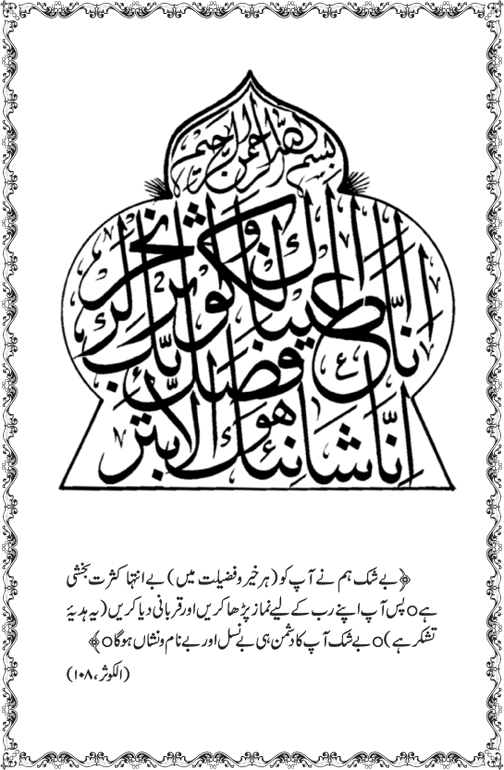 بسم الله الرحمن الرحيم
إنا أعطيناك الكوثر
فصل لربك وانحر
إن شانئك هو الأبتر
﴿بے شک ہم نے آپ کو (ہر خیر و فضیلت میں) بے انتہا کثرت بخشی
ہے o پس آپ اپنے رب کے لیے نماز پڑھا کریں اور قربانی دیا کریں (یہ ہدیۂ
تشکر ہے) o بے شک آپ کا دشمن ہی بے نسل اور بے نام و نشاں ہوگا o﴾
(الکوثر، ۱۰۸)